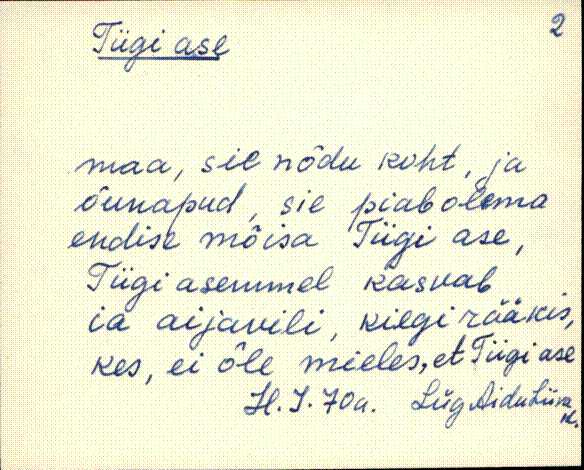 2
Tiigi ase
maa, sie nõdu koht, ja
õunapud, sie piab olema
endise mõisa Tiigi ase,
Tiigi asemmel kasvab
ia aijavili, kiegi rääkis,
kes, ei õle mieles, et Tiigi ase
H. I. 70a. Lüg Aidu Liiva
k.